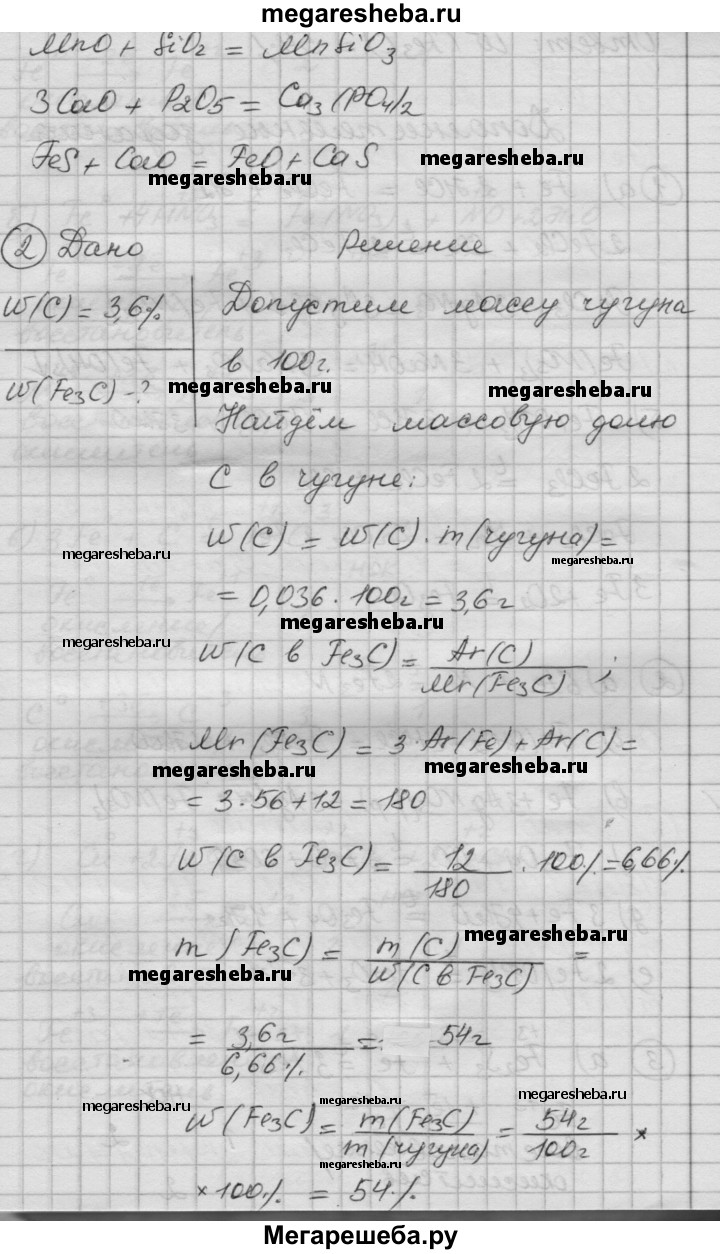 megaresheba.ru
MnO + SiO₂ = MnSiO₃
3CaO + P₂O₅ = Ca₃(PO₄)₂
FeS + CaO = FeO + CaS
megaresheba.ru
megaresheba.ru
② Дано Решение
W(C) = 3,6% Допустим массу чугуна
в 100г.
W(Fe₃C) - ?
megaresheba.ru
megaresheba.ru
Найдём массовую долю
C в чугуне:
W(C) = W(C) · m(чугуна) =
megaresheba.ru
megaresheba.ru
= 0,036 · 100г = 3,6г
megaresheba.ru
megaresheba.ru
W(C в Fe₃C) = Ar(C) / Mr(Fe₃C) ;
Mr(Fe₃C) = 3·Ar(Fe) + Ar(C) =
megaresheba.ru
megaresheba.ru
= 3·56+12 = 180
W(C в Fe₃C) = 12 / 180 · 100% = 6,66%
megaresheba.ru
m(Fe₃C) = m(C) / W(C в Fe₃C) =
megaresheba.ru
= 3,6г / 6,66% = 54г
megaresheba.ru
megaresheba.ru
W(Fe₃C) = m(Fe₃C) / m(чугуна) = 54г / 100г ×
megaresheba.ru
megaresheba.ru
× 100% = 54%
Мегарешеба.ру